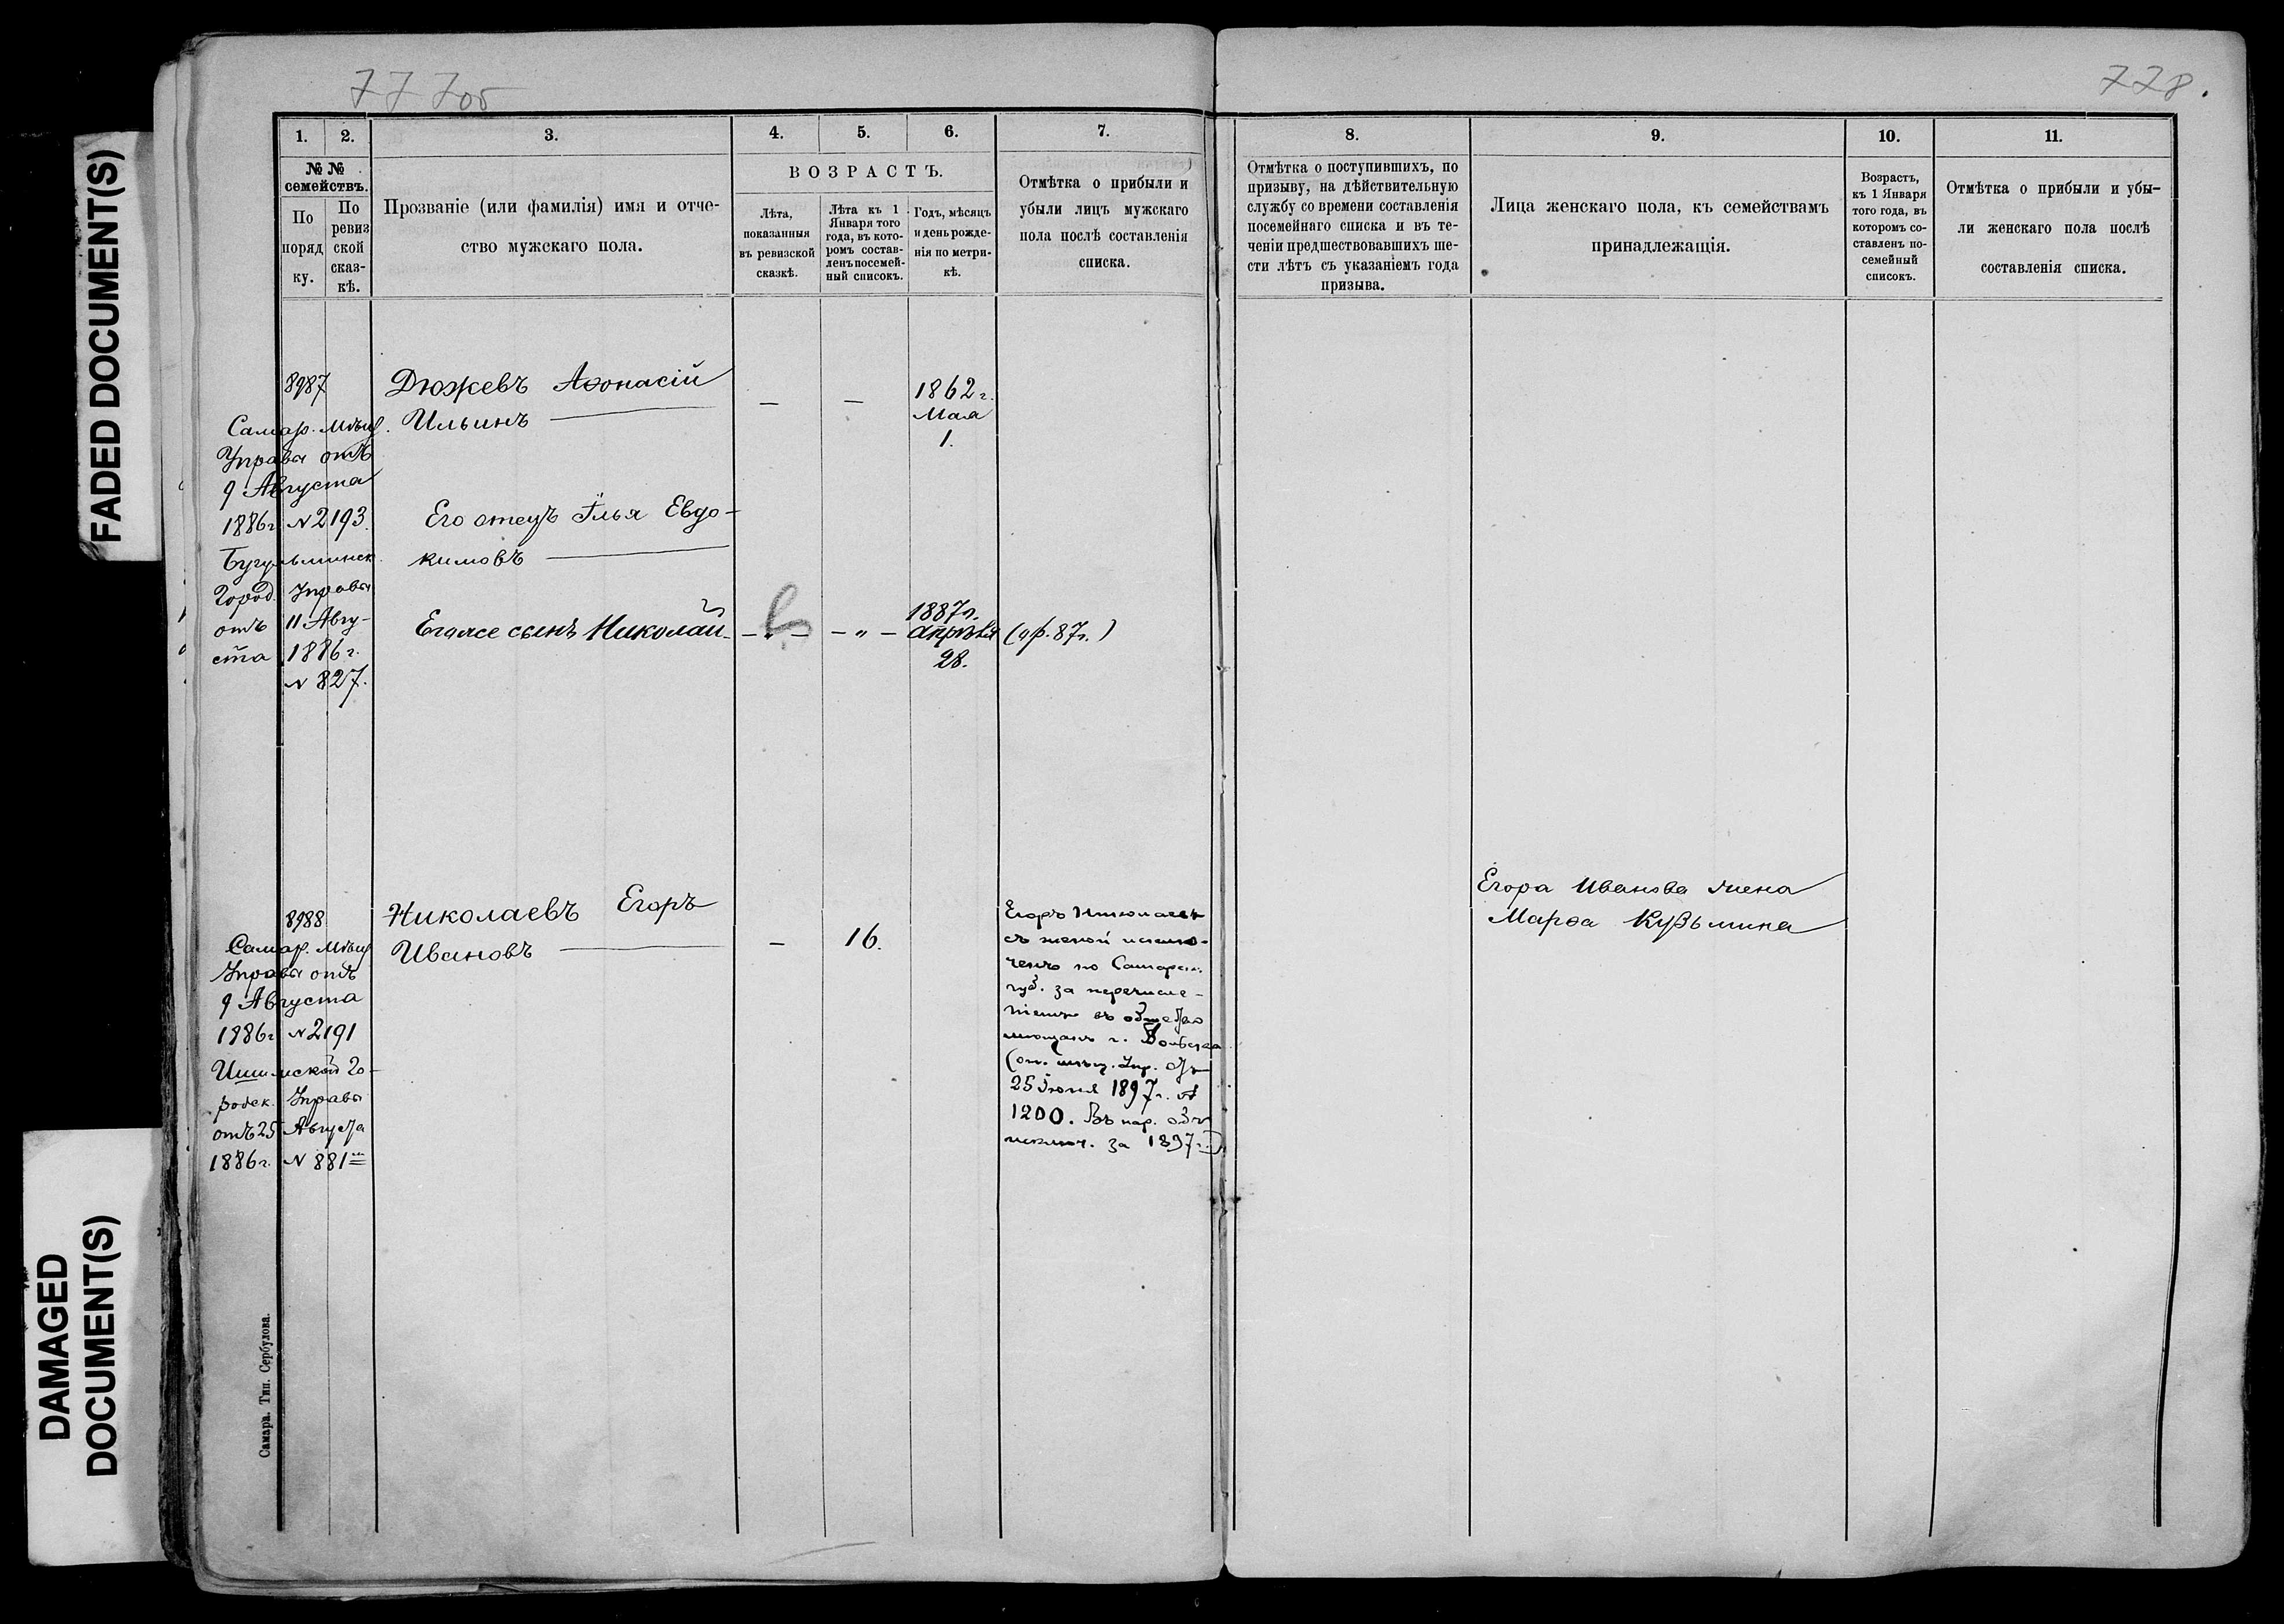 FADED DOCUMENT(S)
DAMAGED
DOCUMENT(S)
777 об
778.
1.
2.
3.
4.
5.
6.
7.
8.
9.
10.
11.
№ №
семействъ.
По
поряд
ку.
По
ревиз
ской
сказ-
кѣ.
Прозваніе (или фамилія) имя и отче-
ство мужскаго пола.
ВОЗРАСТЪ.
Лѣта,
показанныя
въ ревизской
сказкѣ.
Лѣта къ 1
Января того
года, въ кото-
ромъ состав-
ленъ посемей-
ный списокъ.
Годъ, мѣсяцъ
и день рожде-
нія по метри-
кѣ.
Отмѣтка о прибыли и
убыли лицъ мужскаго
пола послѣ составленія
списка.
Отмѣтка о поступившихъ, по
призыву, на дѣйствительную
службу со времени составленія
посемейнаго списка и въ те-
ченіи предшествовавшихъ ше-
сти лѣтъ съ указаніемъ года
призыва.
Лица женскаго пола, къ семействамъ
принадлежащія.
Возрастъ,
къ 1 Января
того года, въ
которомъ со-
ставленъ по-
семейный
списокъ.
Отмѣтка о прибыли и убы-
ли женскаго пола послѣ
составленія списка.
8987
Самар. Мѣщ.
Управы отъ
9 Августа
1886 г. N 2193.
Бугульминск.
Город. Управы
отъ 11 Авгу-
ста 1886 г.
N 827.
Дюжевъ Аѳонасій
Ильинъ
— — 1862 г.
Мая
1.
Его отецъ Илья Евдо-
кимовъ
Его же сынъ Николай
— „ — 1887 г.
апрѣля
28.
(пр. 87 г.)
8988
Самар. Мѣщ
Управы отъ
9 Августа
1886 г. N 2191
Ишимской Го-
родск. Управы
отъ 25 Августа
1886 г. N 881
Николаевъ Егоръ
Ивановъ
— 16.
Егоръ Николаевъ
съ женой исклю-
ченъ по Самарск.
губ. за перечисле-
ніемъ въ общество
мѣщанъ г.
(от. мѣщ. Упр. отъ
25 Іюня 1897 г. N
1200. Въ
исключ. за 1897 г.)
Егора Иванова жена
Марѳа Кузьмина
Самара. Тип. Сербулова.